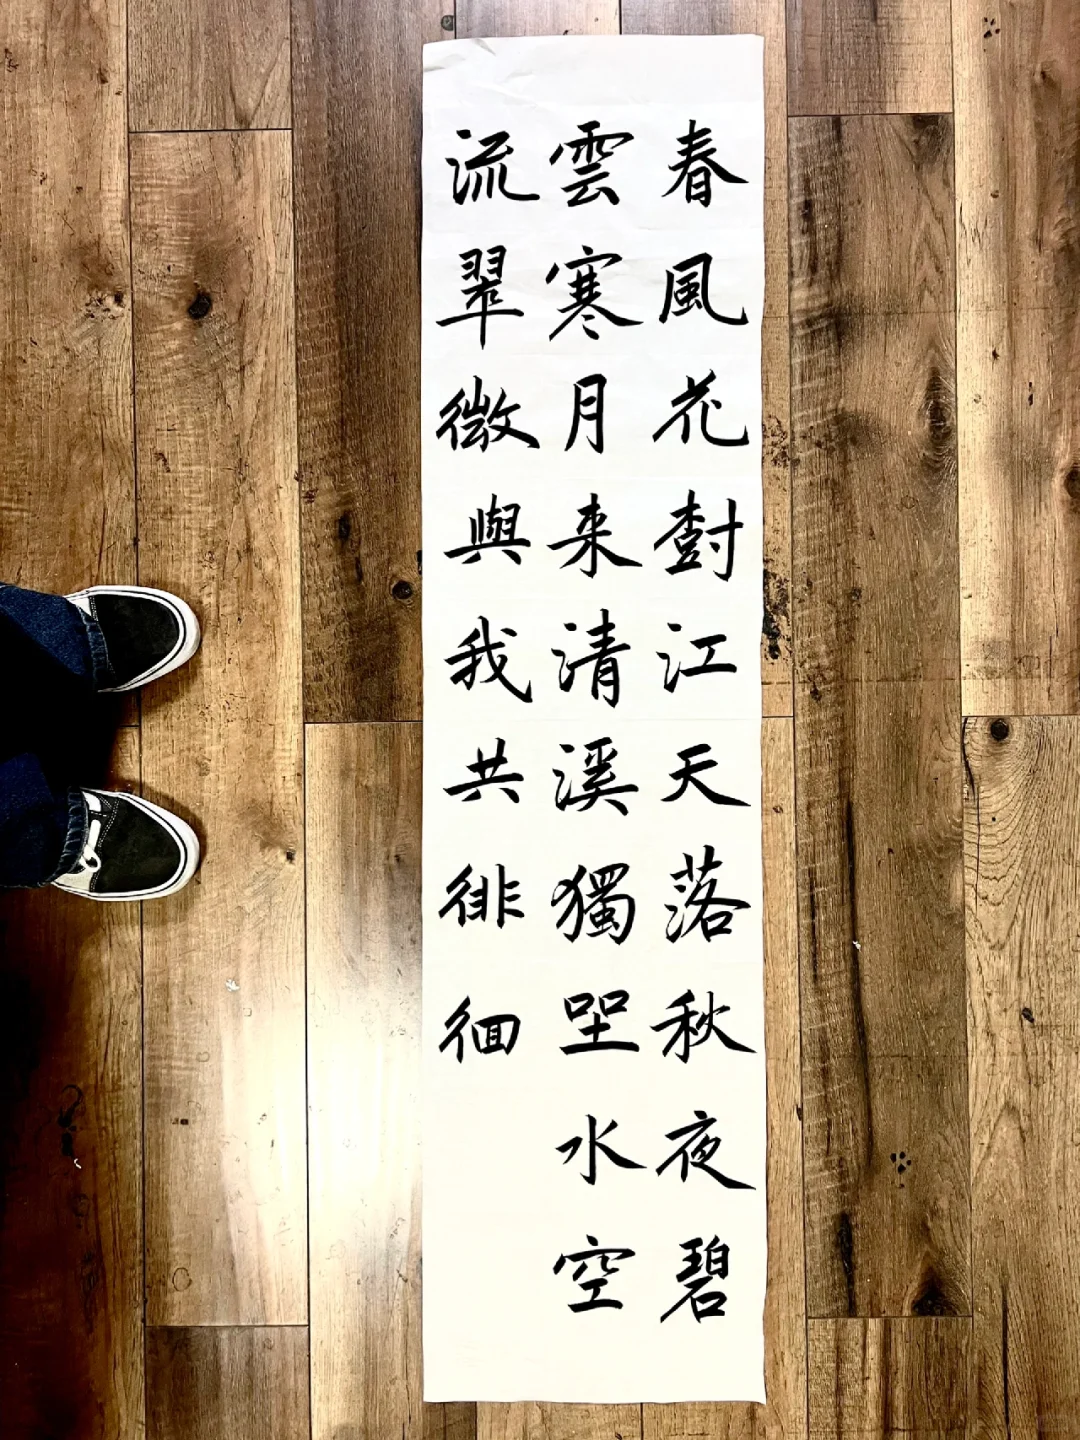 春風花樹江天落秋夜碧
雲寒月来清溪獨坐水空
流翠微與我共徘徊